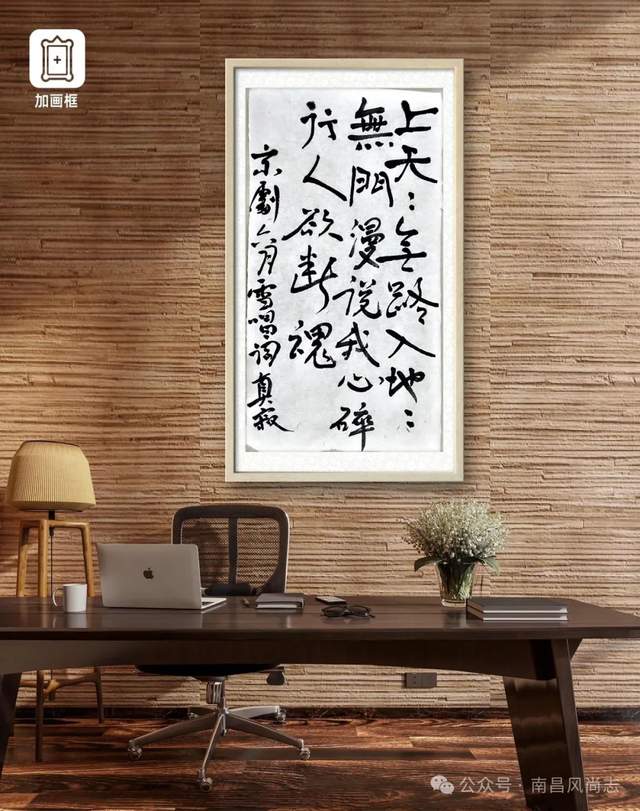 加画框
上天々無路入地々
無門漫说我心碎
行人欲断魂
京劇六月雪唱词真寂
公众号 · 南昌风尚志